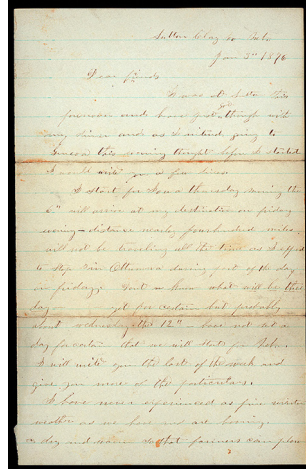 Sutton Clay Co Neb
Jan 3rd 1890
Dear friends
I was at this
forenoon and have just got through with
my dinner and as I intend going to
Geneva this evening thought before I started
I would write you a few lines
I start for Iowa thursday evening the
6th will arrive at my destination on friday
evening - distance nearly four hundred miles.
will not be traveling all the time as I expect
to stop in Ottumwa during part of the day
on friday. Dont know what will be the
day yet for certain but probably
about wednesday the 12th - have not set a
day for certain that we will start for Neb.
I will write you the last of the week and
give you more of the particulars.
I have never experienced as fine winter
weather as we have and are having.
dry and warm so that farmers can plow